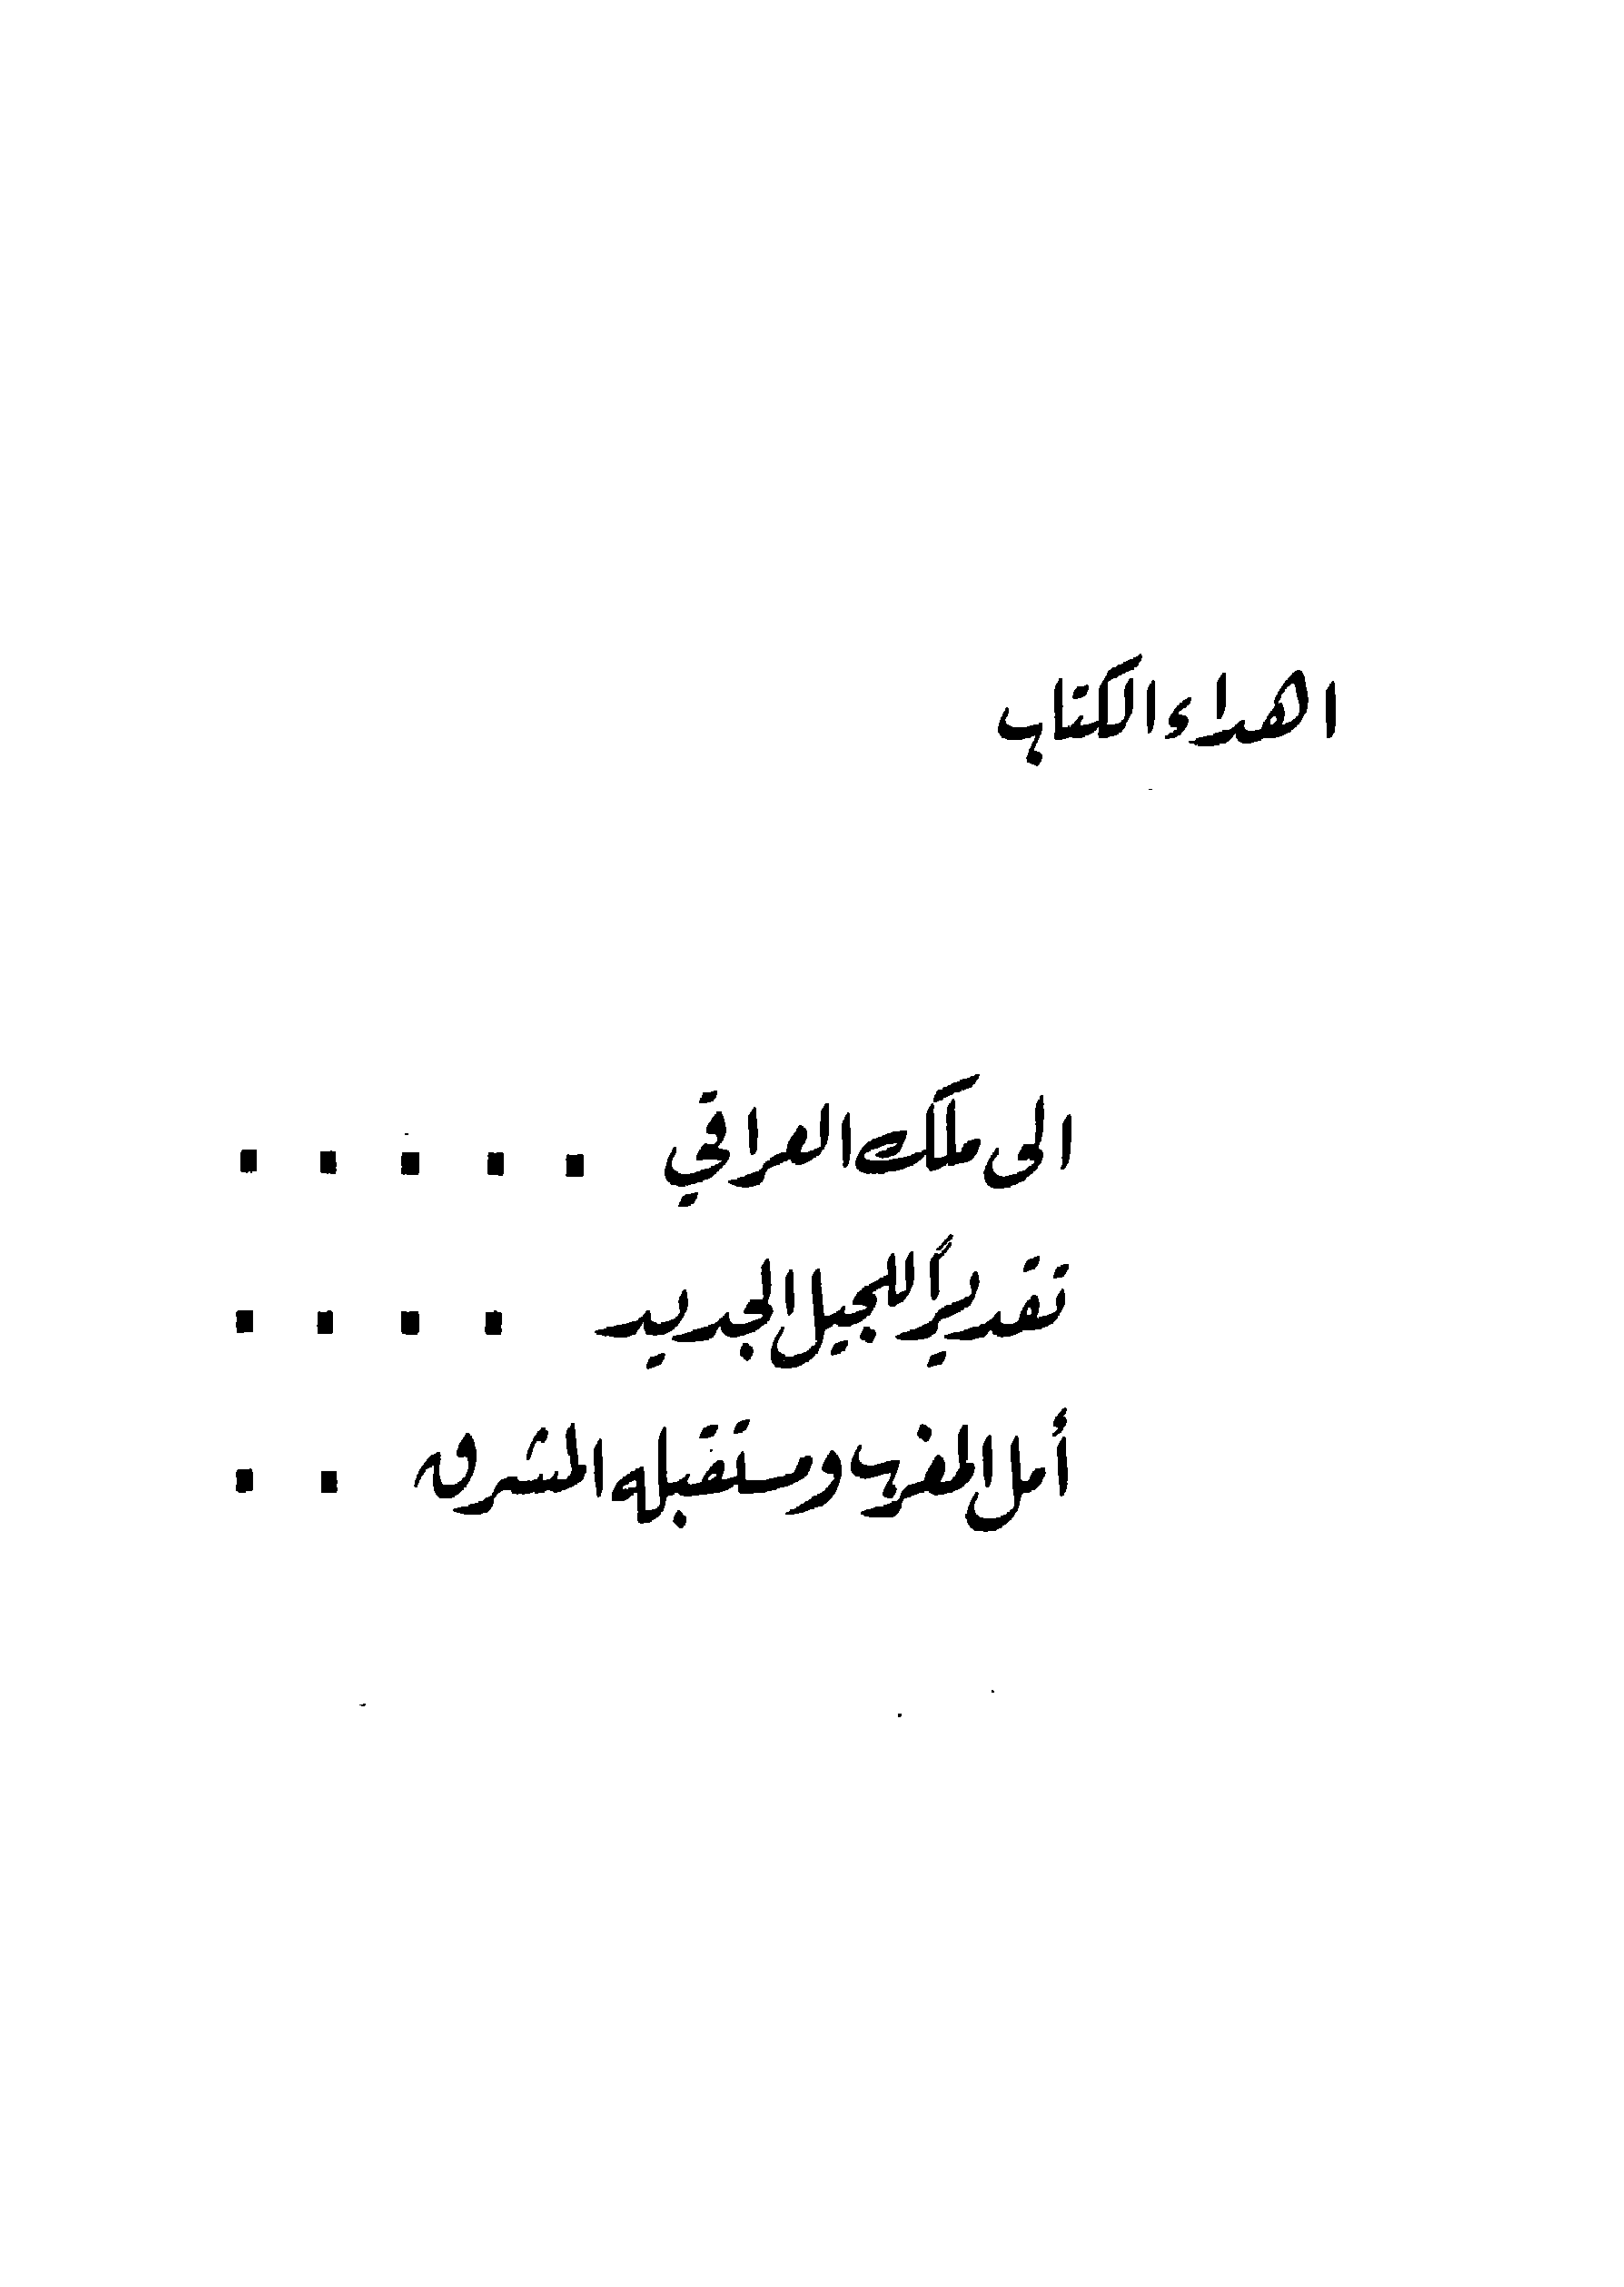 اهداء الكتاب
الى ملك العراقي . . . . .
تقديراً للجيل الجديد . . . .
أمل المغرب ومستقبله المشرق . .